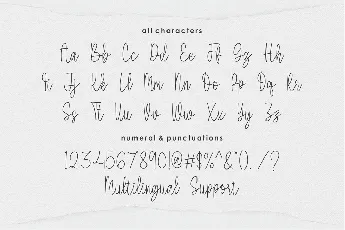 all characters
Aa Bb Cc Dd Ee Ff Gg Hh
Ii Jj Kk Ll Mm Nn Oo Pp Qq Rr
Ss Tt Uu Vv Ww Xx Yy Zz
numeral & punctuations
1234067890!@#$%^&*()./?
Multilingual Support